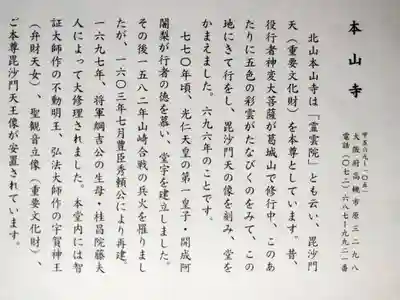 本山寺
〒五六九ー一〇五一
大阪府高槻市原三二九八
電話(〇七二)六八七ー九九二一番
北山本山寺は「霊雲院」とも云い、毘沙門
天(重要文化財)を本尊としています。昔、
役行者神変大菩薩が葛城山で修行中、このあ
たりに五色の彩雲がたなびくのをみて、この
地にきて行をし、毘沙門天の像を刻み、堂を
かまえました。六九六年のことです。
七七〇年頃、光仁天皇の第一皇子・開成阿
闍梨が行者の徳を慕い、堂宇を建立しました。
その後一五八二年山崎合戦の兵火を罹りまし
たが、一六〇三年七月豊臣秀頼公により再建、
一六九七年、将軍綱吉公の生母・桂昌院藤夫
人によって大修理されました。本堂内には智
証大師作の不動明王、弘法大師作の宇賀神王
(弁財天女)、聖観音立像(重要文化財)、
ご本尊毘沙門天王像が安置されています。